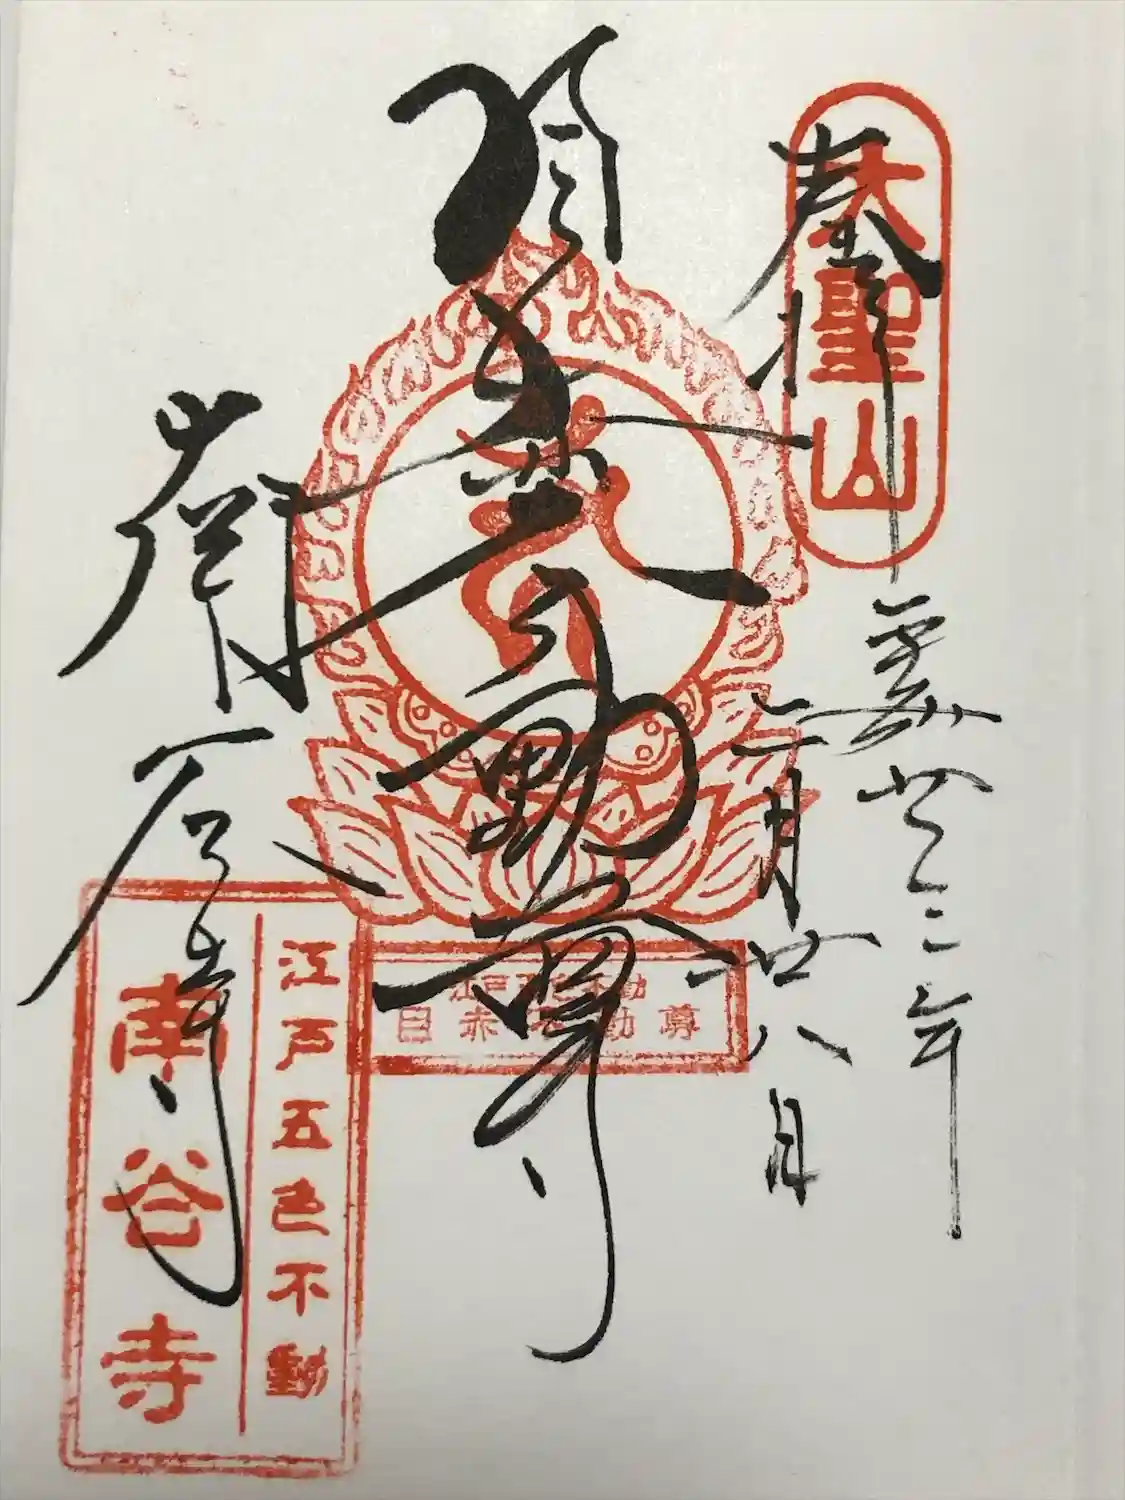 奉拝
大聖山
平成廿三年
月廿八日
目赤不動尊
江戸五色不動
目赤不動尊
南谷寺
江戸五色不動
南谷寺